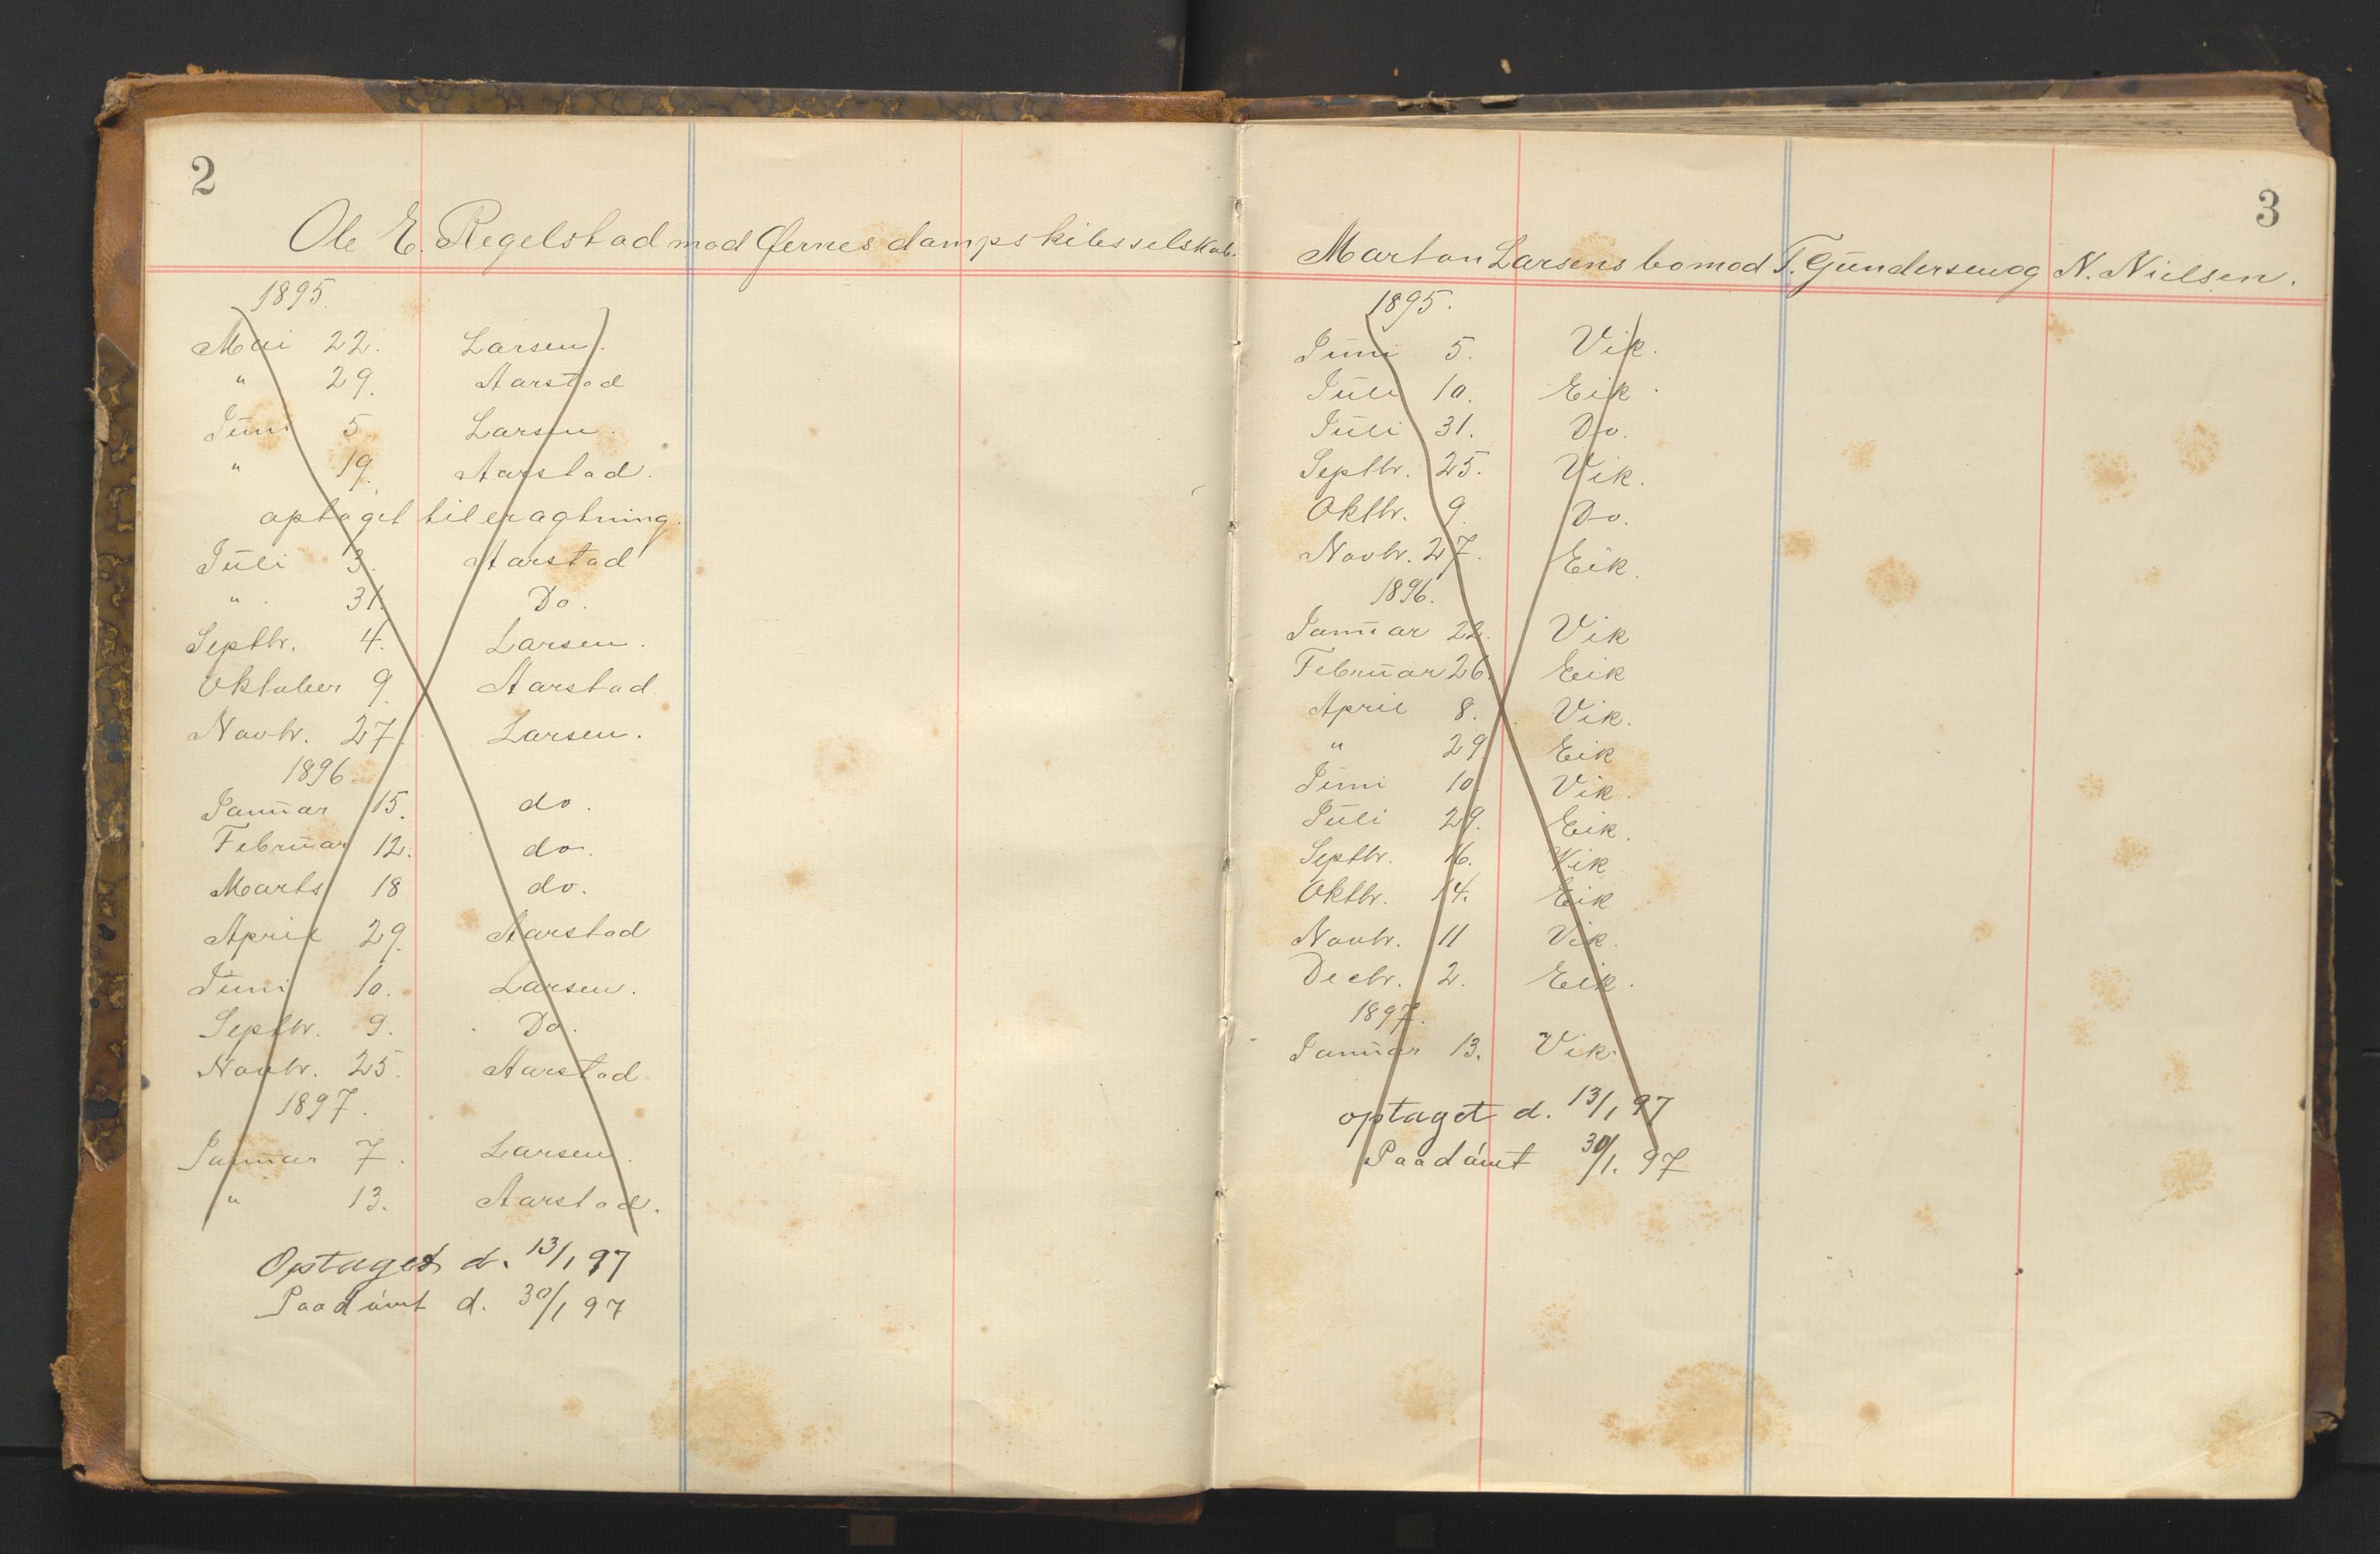 2
Ole E. Regelstad mod Øernes dampskibsselskab.
1895.
Mai 22. Larsen.
" 29. Aarstad
Juni 5 Larsen.
" 19. Aarstad.
optaget til eragtning.
Juli 3. Aarstad
" 31. Do.
Septbr. 4. Larsen.
Oktober 9. Aarstad.
Novbr. 27. Larsen.
1896.
Januar 15. do.
Februar 12. do.
Marts 18 do.
April 29. Aarstad
Juni 10. Larsen.
Septbr. 9. Do.
Novbr. 25. Aarstad
1897.
Januar 7. Larsen.
" 13. Aarstad.
Optaget d. 13/1 97
Paadømt d. 30/1 97
3
Morten Larsens bo mod T. Gundersen og N. Nielsen.
1895.
Juni 5. Vik.
Juli 10. Eik.
Juli 31. Do.
Septbr. 25. Vik.
Oktbr. 9. Do.
Novbr. 27. Eik.
1896.
Januar 22. Vik
Februar 26. Eik
April 8. Vik.
" 29 Eik
Juni 10 Vik.
Juli 29. Eik.
Septbr. 16. Vik.
Oktbr. 14. Eik
Novbr. 11 Vik.
Decbr. 2. Eik.
1897.
Januar 13. Vik.
optaget d. 13/1 97
Paadømt 30/1. 97